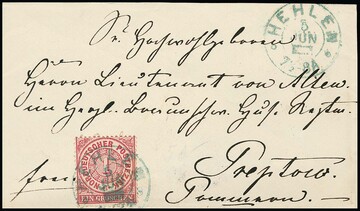 HEHLEN
5
JUN
7-8 A
Sr. Hochwohlgeboren
Herrn Lieutenant von Alten
im Herzl. Braunschw. Hus. Regtm.
Treptow
frei
Pommern.
NORDDEUTSCHER POSTBEZIRK
EIN GROSCHEN